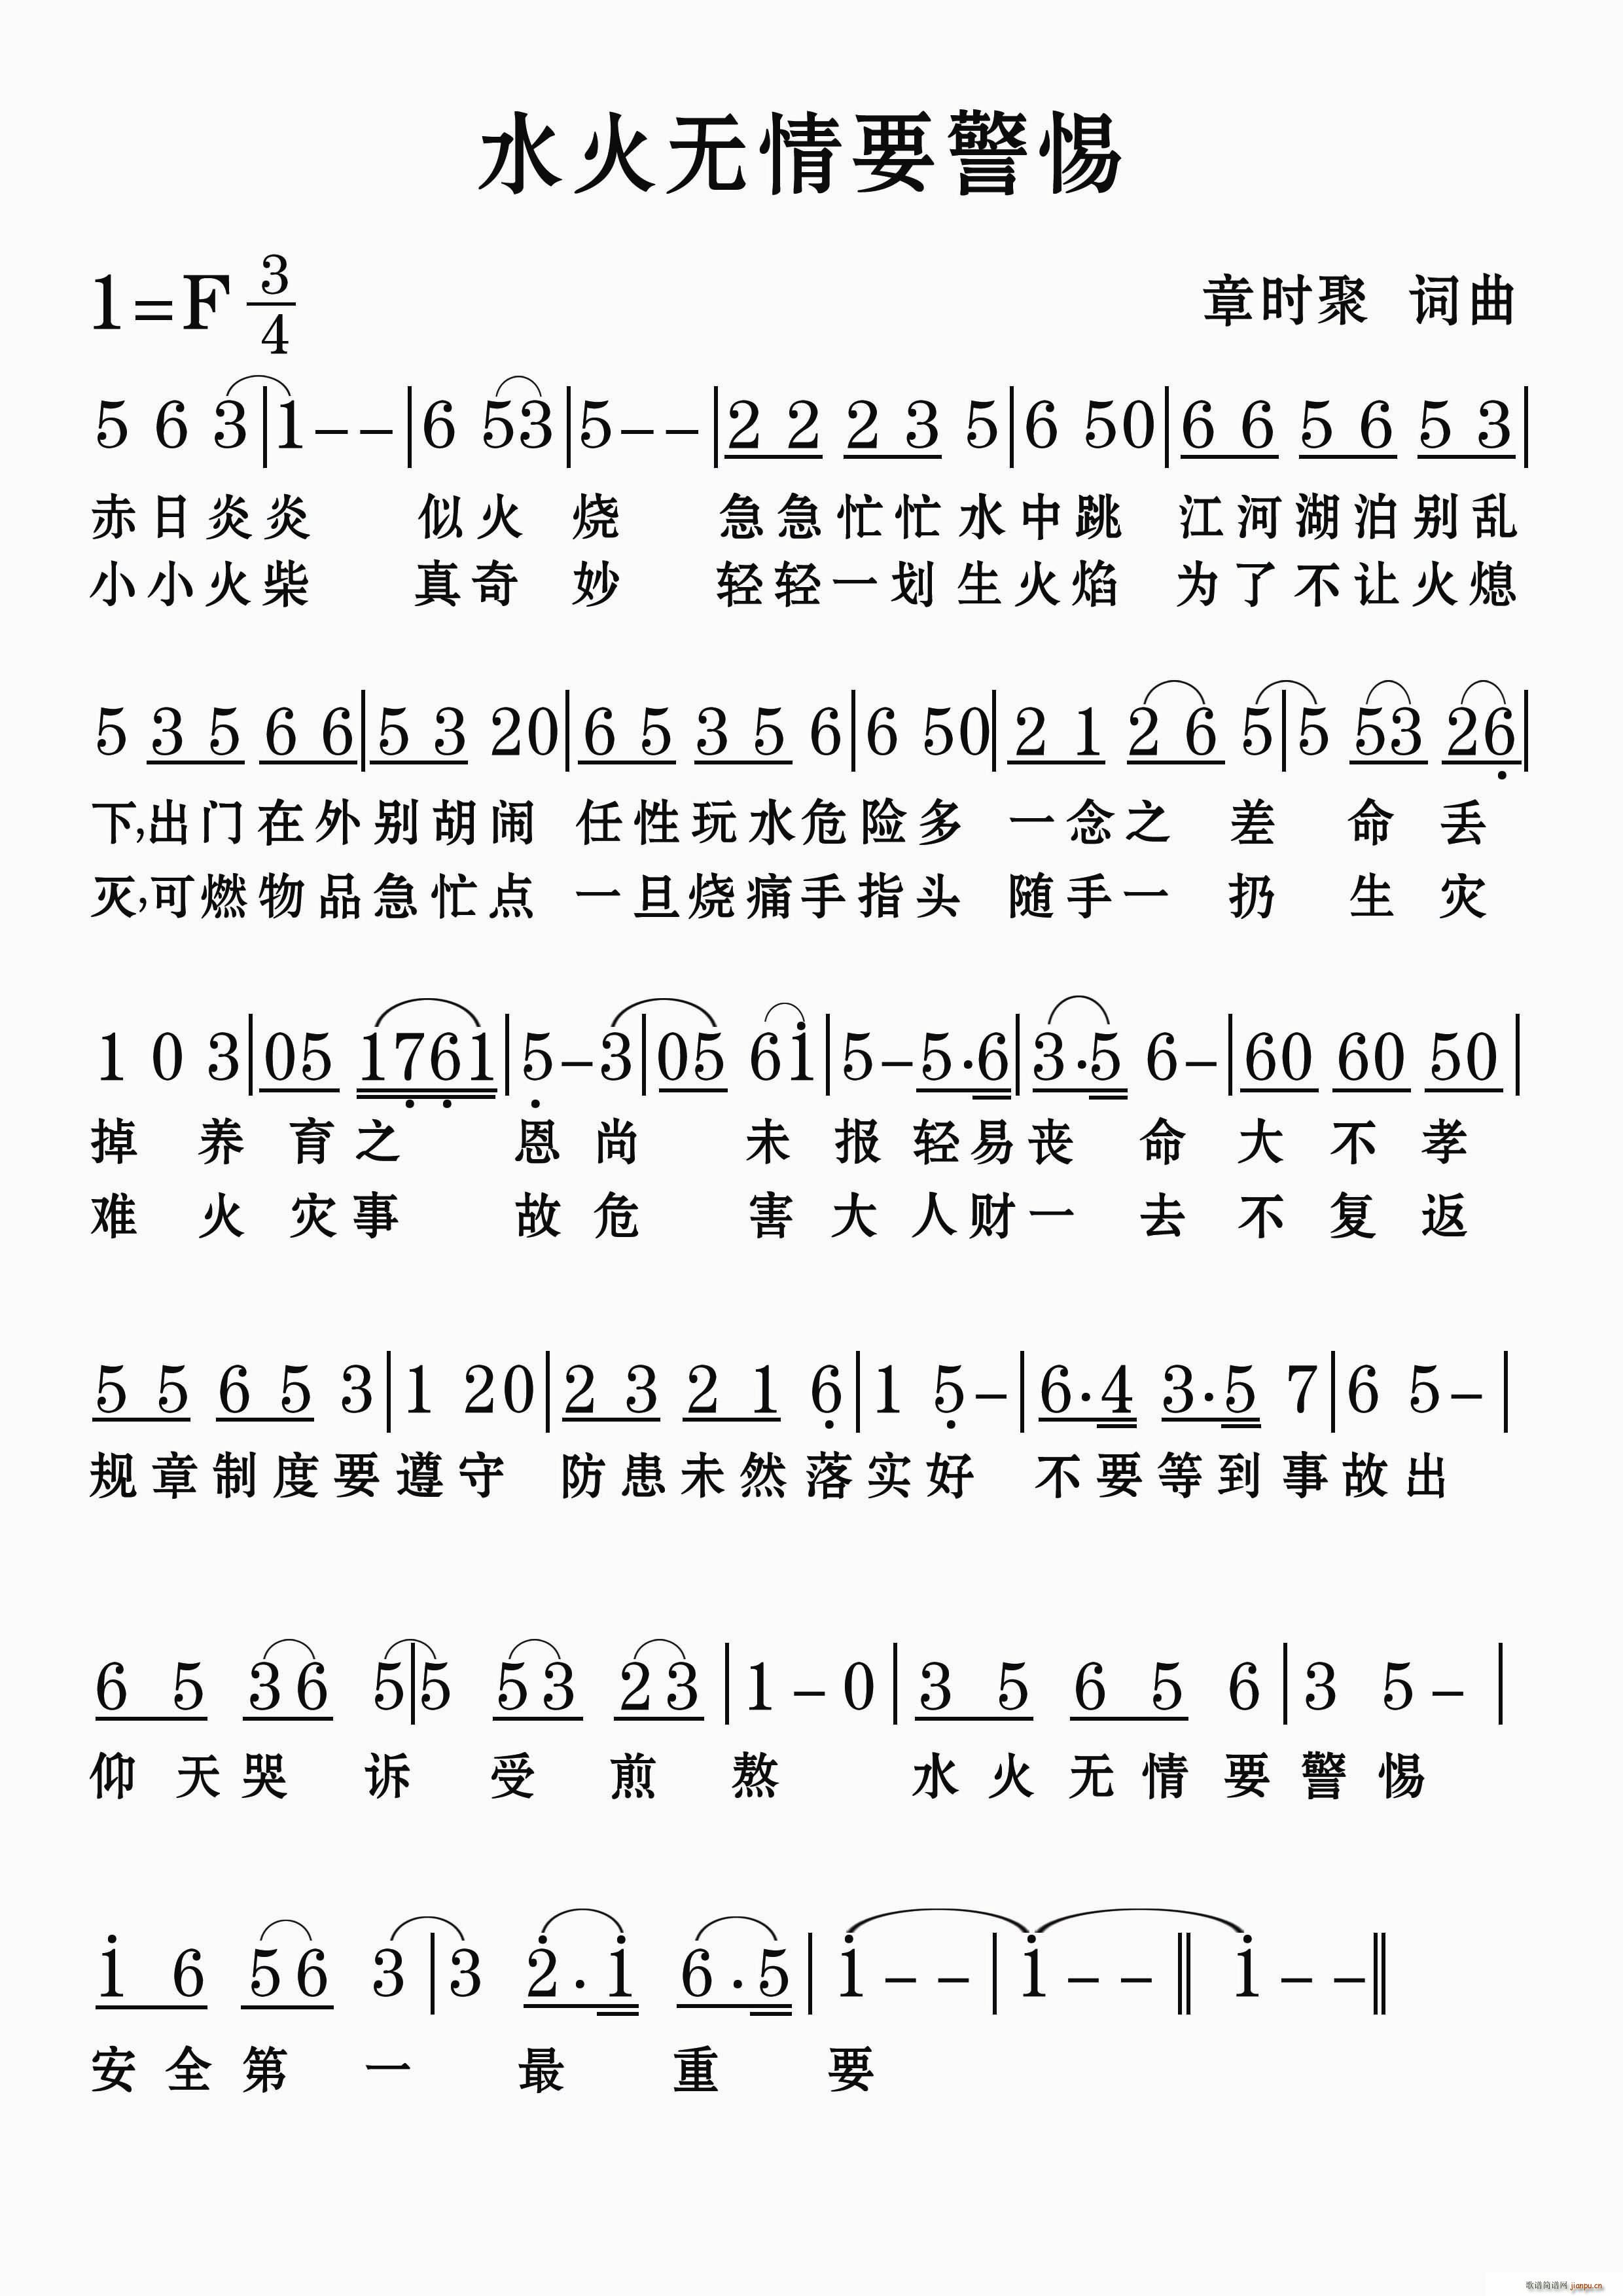 水火无情要警惕
1=F 3/4
章时聚 词曲
5 6 3|1--|6 53|5--|2 2 2 3 5|6 50|6 6 5 6 5 3|
赤日炎炎 似火烧 急急忙忙水中跳 江河湖泊别乱
小小火柴 真奇妙 轻轻一划生火焰 为了不让火熄
5 3 5 6 6|5 3 20|6 5 3 5 6|6 50|2 1 2 6 5|5 53 26|
下,出门在外别胡闹 任性玩水危险多 一念之 差 命 丢
灭,可燃物品急忙点 一旦烧痛手指头 随手一 扔 生 灾
1 0 3|05 1761|5-3|05 61|5-5·6|3·5 6-|60 60 50|
掉 养 育之 恩尚 未 报轻易丧 命 大 不 孝
难 火 灾事 故危 害 大人财一 去 不 复 返
5 5 6 5 3|1 20|2 3 2 1 6|1 5-|6·4 3·5 7|6 5-|
规章制度要遵守 防患未然落实好 不要等到事故出
6 5 36 5|5 53 23|1-0|3 5 6 5 6|3 5-|
仰天哭 诉 受 煎 熬 水火无情要警惕
1 6 56 3|3 2·1 6·5|1--|1--‖1--‖
安全第 一 最 重 要
歌谱简谱网 jianpu.cn